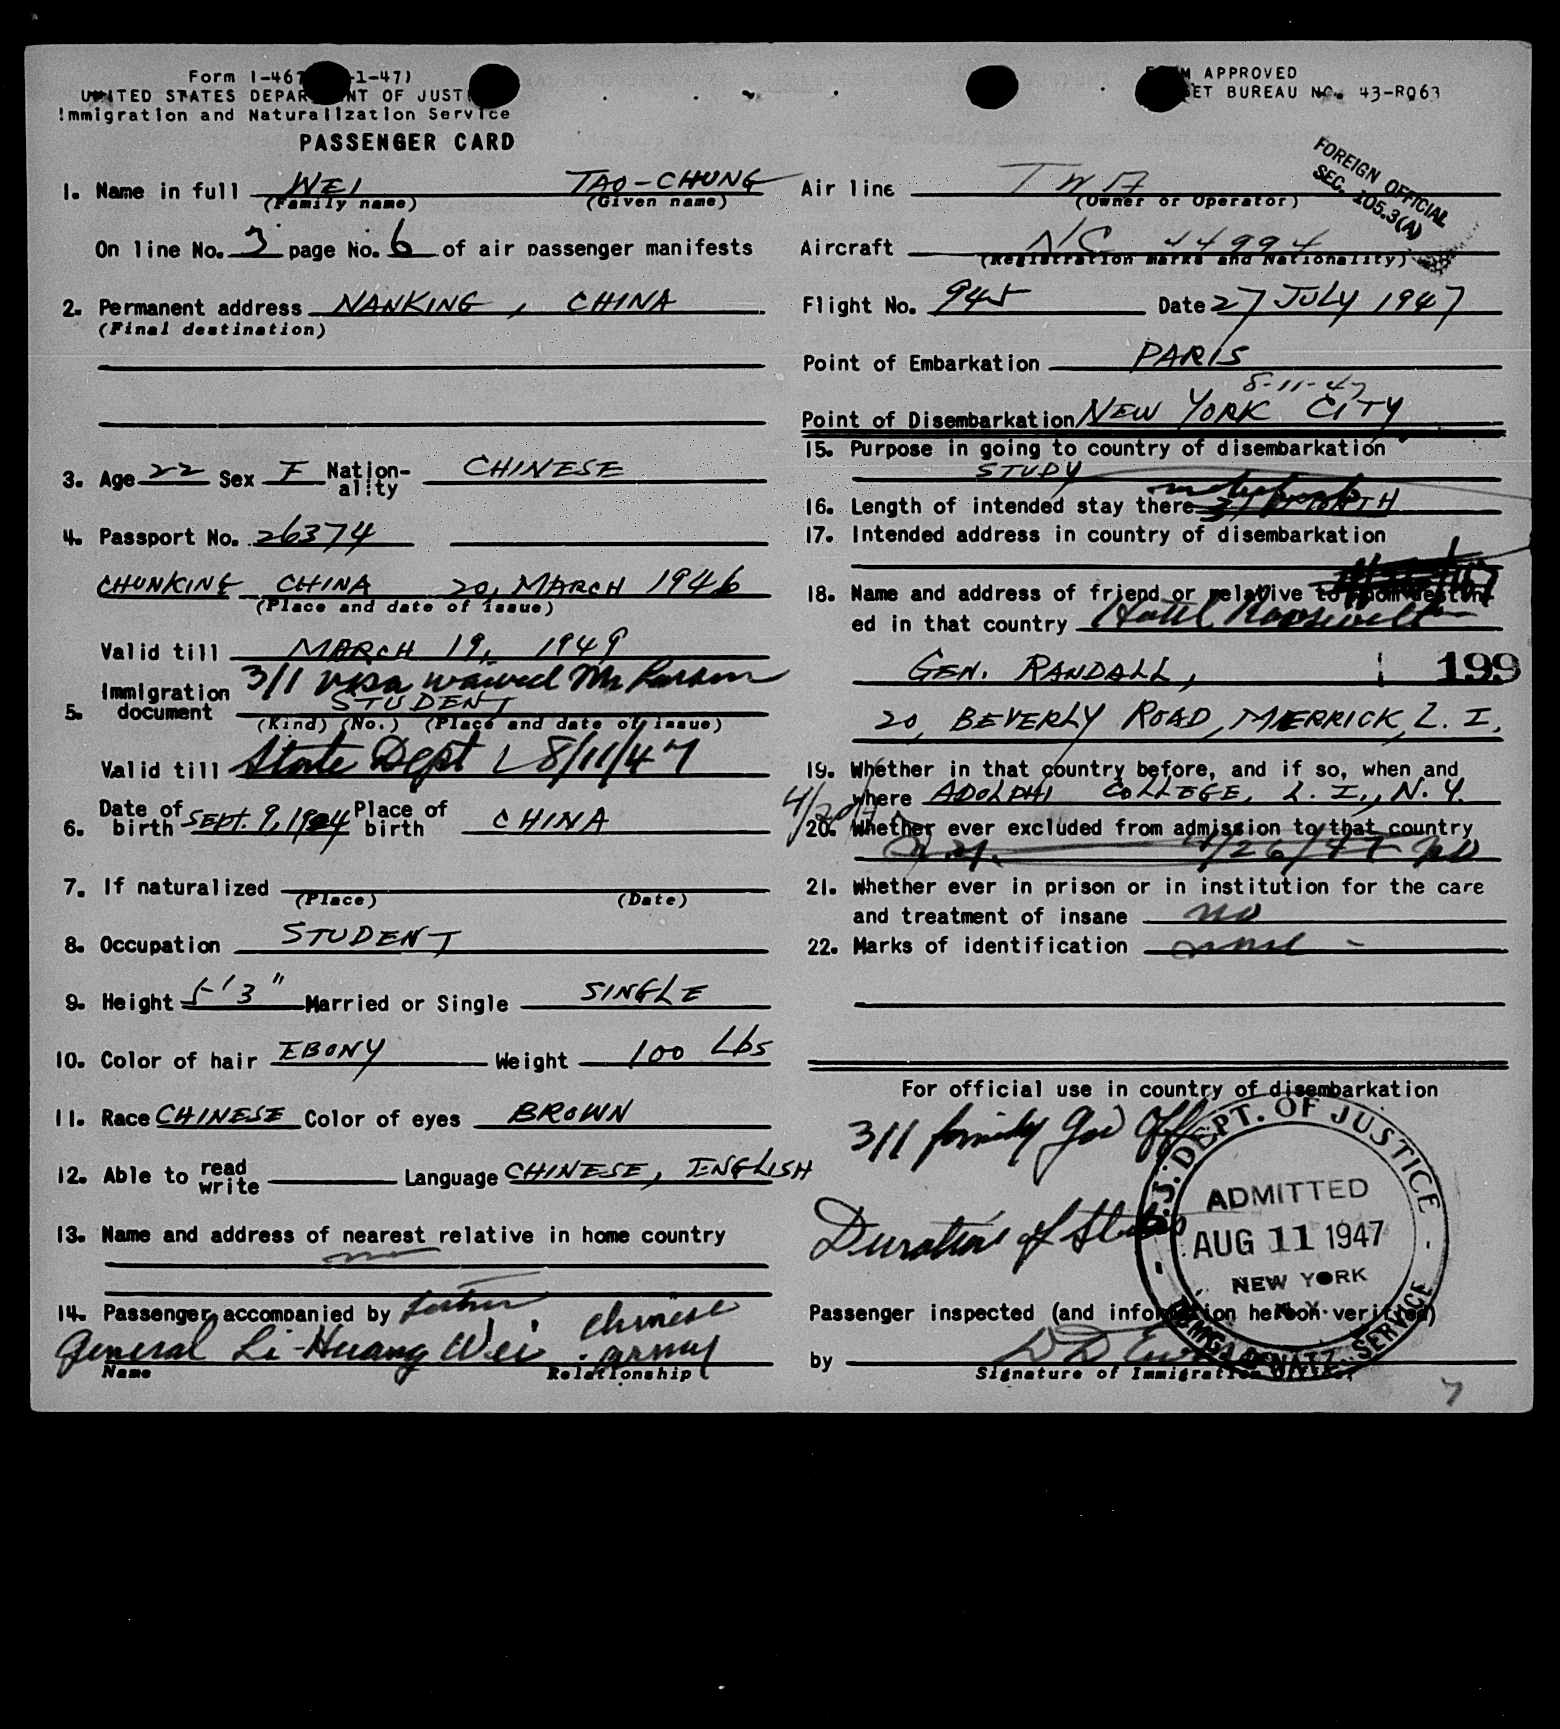 Form I-467 1-47)
UNITED STATES DEPARTMENT OF JUST
Immigration and Naturalization Service
PASSENGER CARD
FORM APPROVED
BUDGET BUREAU NO. 43-R063
FOREIGN OFFICIAL
SEC. 105.3(A)
1. Name in full WEI TAO-CHUNG
(Family name) (Given name)
On line No. 3 page No. 6 of air passenger manifests
2. Permanent address NANKING, CHINA
(Final destination)
3. Age 22 Sex F Nation-ality CHINESE
4. Passport No. 26374
CHUNKING CHINA 20, MARCH 1946
(Place and date of issue)
Valid till MARCH 19, 1949
3/1 visa waived Mr
5. Immigration document STUDENT
(Kind) (No.) (Place and date of issue)
Valid till State Dept L 8/11/47
6. Date of birth SEPT. 9, 1924 Place of birth CHINA
7. If naturalized
(Place) (Date)
8. Occupation STUDENT
9. Height 5'3" Married or Single SINGLE
10. Color of hair EBONY Weight 100 Lbs
11. Race CHINESE Color of eyes BROWN
12. Able to read write Language CHINESE, ENGLISH
13. Name and address of nearest relative in home country
no
14. Passenger accompanied by father
General Li-Huang Wei, Chinese army
Name Relationship
Air line TWA
(Owner or Operator)
Aircraft NC 44994
(Registration marks and Nationality)
Flight No. 945 Date 27 JULY 1947
Point of Embarkation PARIS
8-11-47
Point of Disembarkation NEW YORK CITY
15. Purpose in going to country of disembarkation
STUDY
16. Length of intended stay there MONTH
17. Intended address in country of disembarkation
18. Name and address of friend or relative to whom destined in that country Hotel Roosevelt
GEN. RANDALL, 199
20, BEVERLY ROAD, MERRICK, L. I.
19. Whether in that country before, and if so, when and
where ADOLPHI COLLEGE, L. I., N.Y.
20. Whether ever excluded from admission to that country
4/26/47
21. Whether ever in prison or in institution for the care
and treatment of insane no
22. Marks of identification none -
For official use in country of disembarkation
3/1 family Gov Off
Duration of Status
U.S. DEPT. OF JUSTICE
ADMITTED
AUG 11 1947
NEW YORK
N.Y.
IMMIG. & NATZ. SERVICE
Passenger inspected (and information hereon verified)
by
Signature of Immigration Officer
7